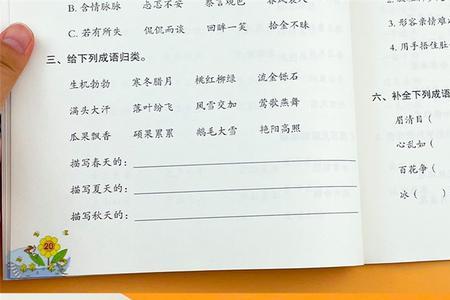 B. 含情脉脉 忐忑不安 察言观色
C. 若有所失 侃侃而谈 回眸一笑 拾金不昧
三、给下列成语归类。
生机勃勃 寒冬腊月 桃红柳绿 流金铄石
满头大汗 落叶纷飞 风雪交加 莺歌燕舞
瓜果飘香 硕果累累 鹅毛大雪 艳阳高照
描写春天的：
描写夏天的：
描写秋天的：
20
3. 形容亲情难
4. 用手捂住肚
六、补全下列成语
眉清目（
心乱如（
百花争（
冰（ ）（